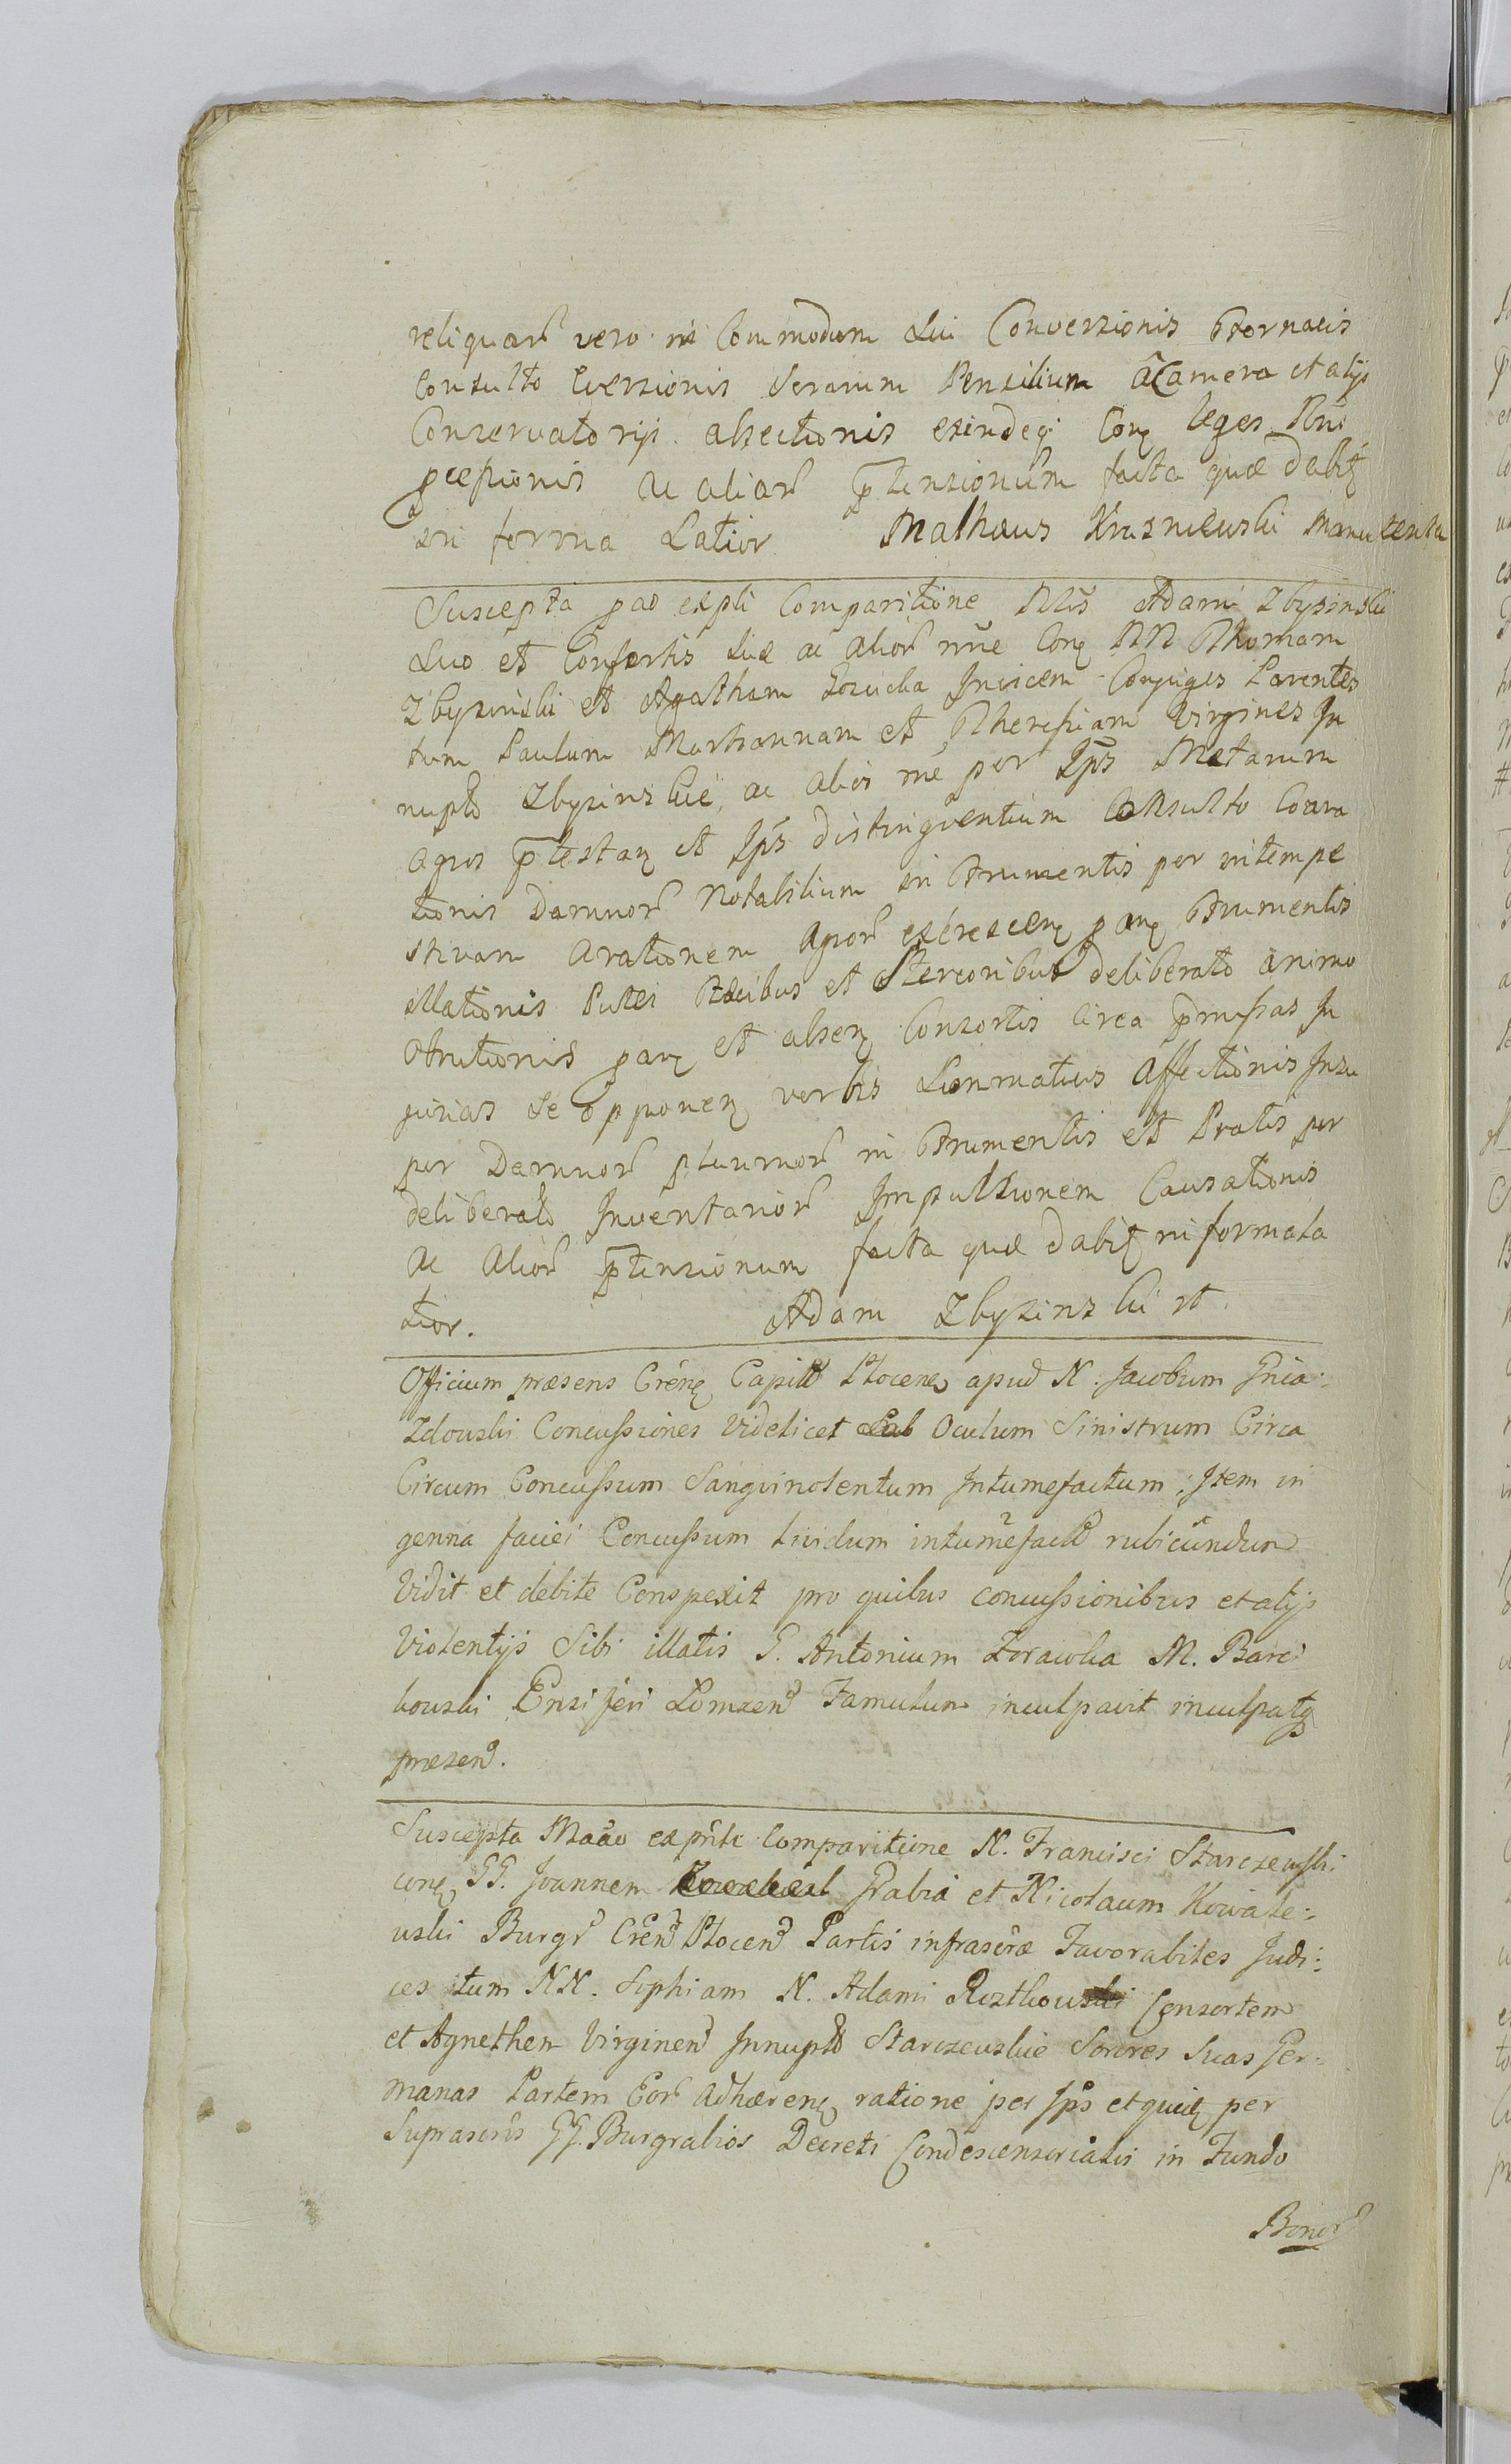 reliquar vero in Commodum Sui Conversionis Fornacis
Consulto Eversionis Serarum Pensilium a Camera et alijs
Conservatorijs absectionis exindeq Conq leges
pcepionis ac aliar ptensionum facta quæ dabitq
in forma Latior Mathæus Krasniewski manutenta
Suscepta pao expli Comparitione Nlis Adami Zbyzinski
Suo et Consortis Suæ ac alior nne Conq NN Thomam
Zbyzinski et Agatham Invicem Conjuges Parentes
tum Paulum Mariannam et Theresiam Virgines In
nuptas Zbyzinskie, ac alios me per Ips Metarum
agros ptestanq et Ips distingventium Consulto Coara
tionis Damnor Notabilium in Frumentis per intempe
stivam arationem Agror excrescenq panq Frumentis
illationis Putei Fæcibus et Stercoribus deliberato animo
Obrutionis panq et absenq Consortis circa pmissas In
jurias se opponenq verbis affectionis Insu
per Damnor plurimor in Frumentis et Pratis per
deliberatam Inventarior Impulsionem Causationis
ac alior ptensionum facta quæ dabitq in forma la
tior. Adam Zbyzinski rt
Officium præsens Crénq Capitle Plocenq apud N. Jacobum Gnia:
zdowski Concussiones Videlicet Sub Oculum Sinistrum Circa
Circum Concussum Sangvinolentum Intumefactum; Item in
genna faciei Concussum lividum intumefactu rubicundum
Vidit et debite Conspexit pro quibus concussionibus et alijs
Violentijs Sibi illatis G. Antonium Zorawka M. Barci
kowski Ensiferi Lomzen Famulum inculpavit inculpatq
præsen.
Suscepta Maão exprite Comparitione N. Francisci Starczewski
conq GG. Joannem Grabia et Nicolaum Kowale:
wski Burgr Cren Plocen Partis infrascræ Favorabiles Judi:
ces tum NN. Sophiam N. Adami Rostkowski Consortem
et Agnethem Virginem Innupta Starczewskie Sorores Suas Ger:
manas Partem Eor adhærenq ratione per Ips et quidq per
Suprascris GG. Burgrabios Decreti Condescensorialis in Fundo
Bonor